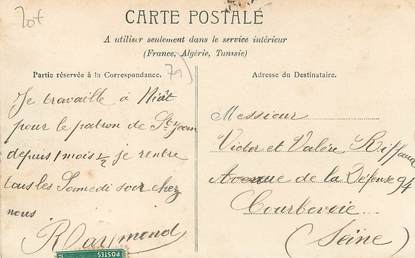 CARTE POSTALE
A utiliser seulement dans le service intérieur
(France, Algérie, Tunisie)
Partie réservée à la Correspondance.
Adresse du Destinataire.
79
Je travaille à Niort
pour le patron de St Jean
depuis 1 mois ½ je rentre
tous les Samedi soir chez
nous
Raymond
Messieur
Victor et Valère
Avenue de la Défense 94
Courbevoie
(Seine)